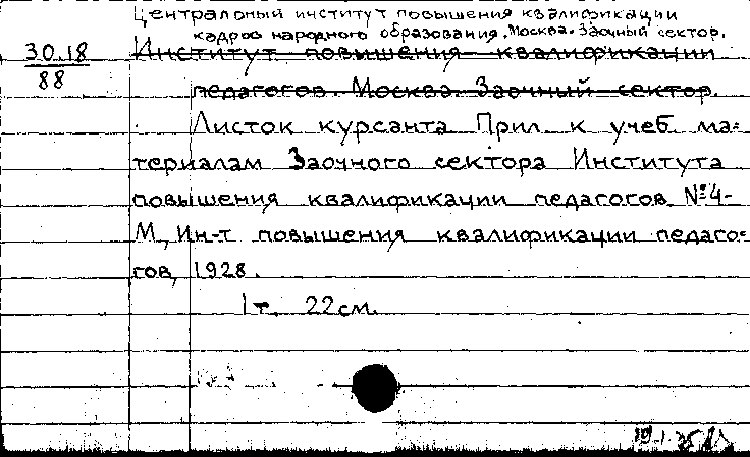 Центральный институт повышения квалификации
кадров народного образования. Москва. Заочный сектор.
30.18
88
Институт повышения квалификации
педагогов. Москва. Заочный сектор.
Листок курсанта Прил. к учеб. ма=
териалам Заочного сектора Института
повышения квалификации педагогов №4-
М., Ин-т повышения квалификации педаго=
гов, 1928.
1 т. 22 см.